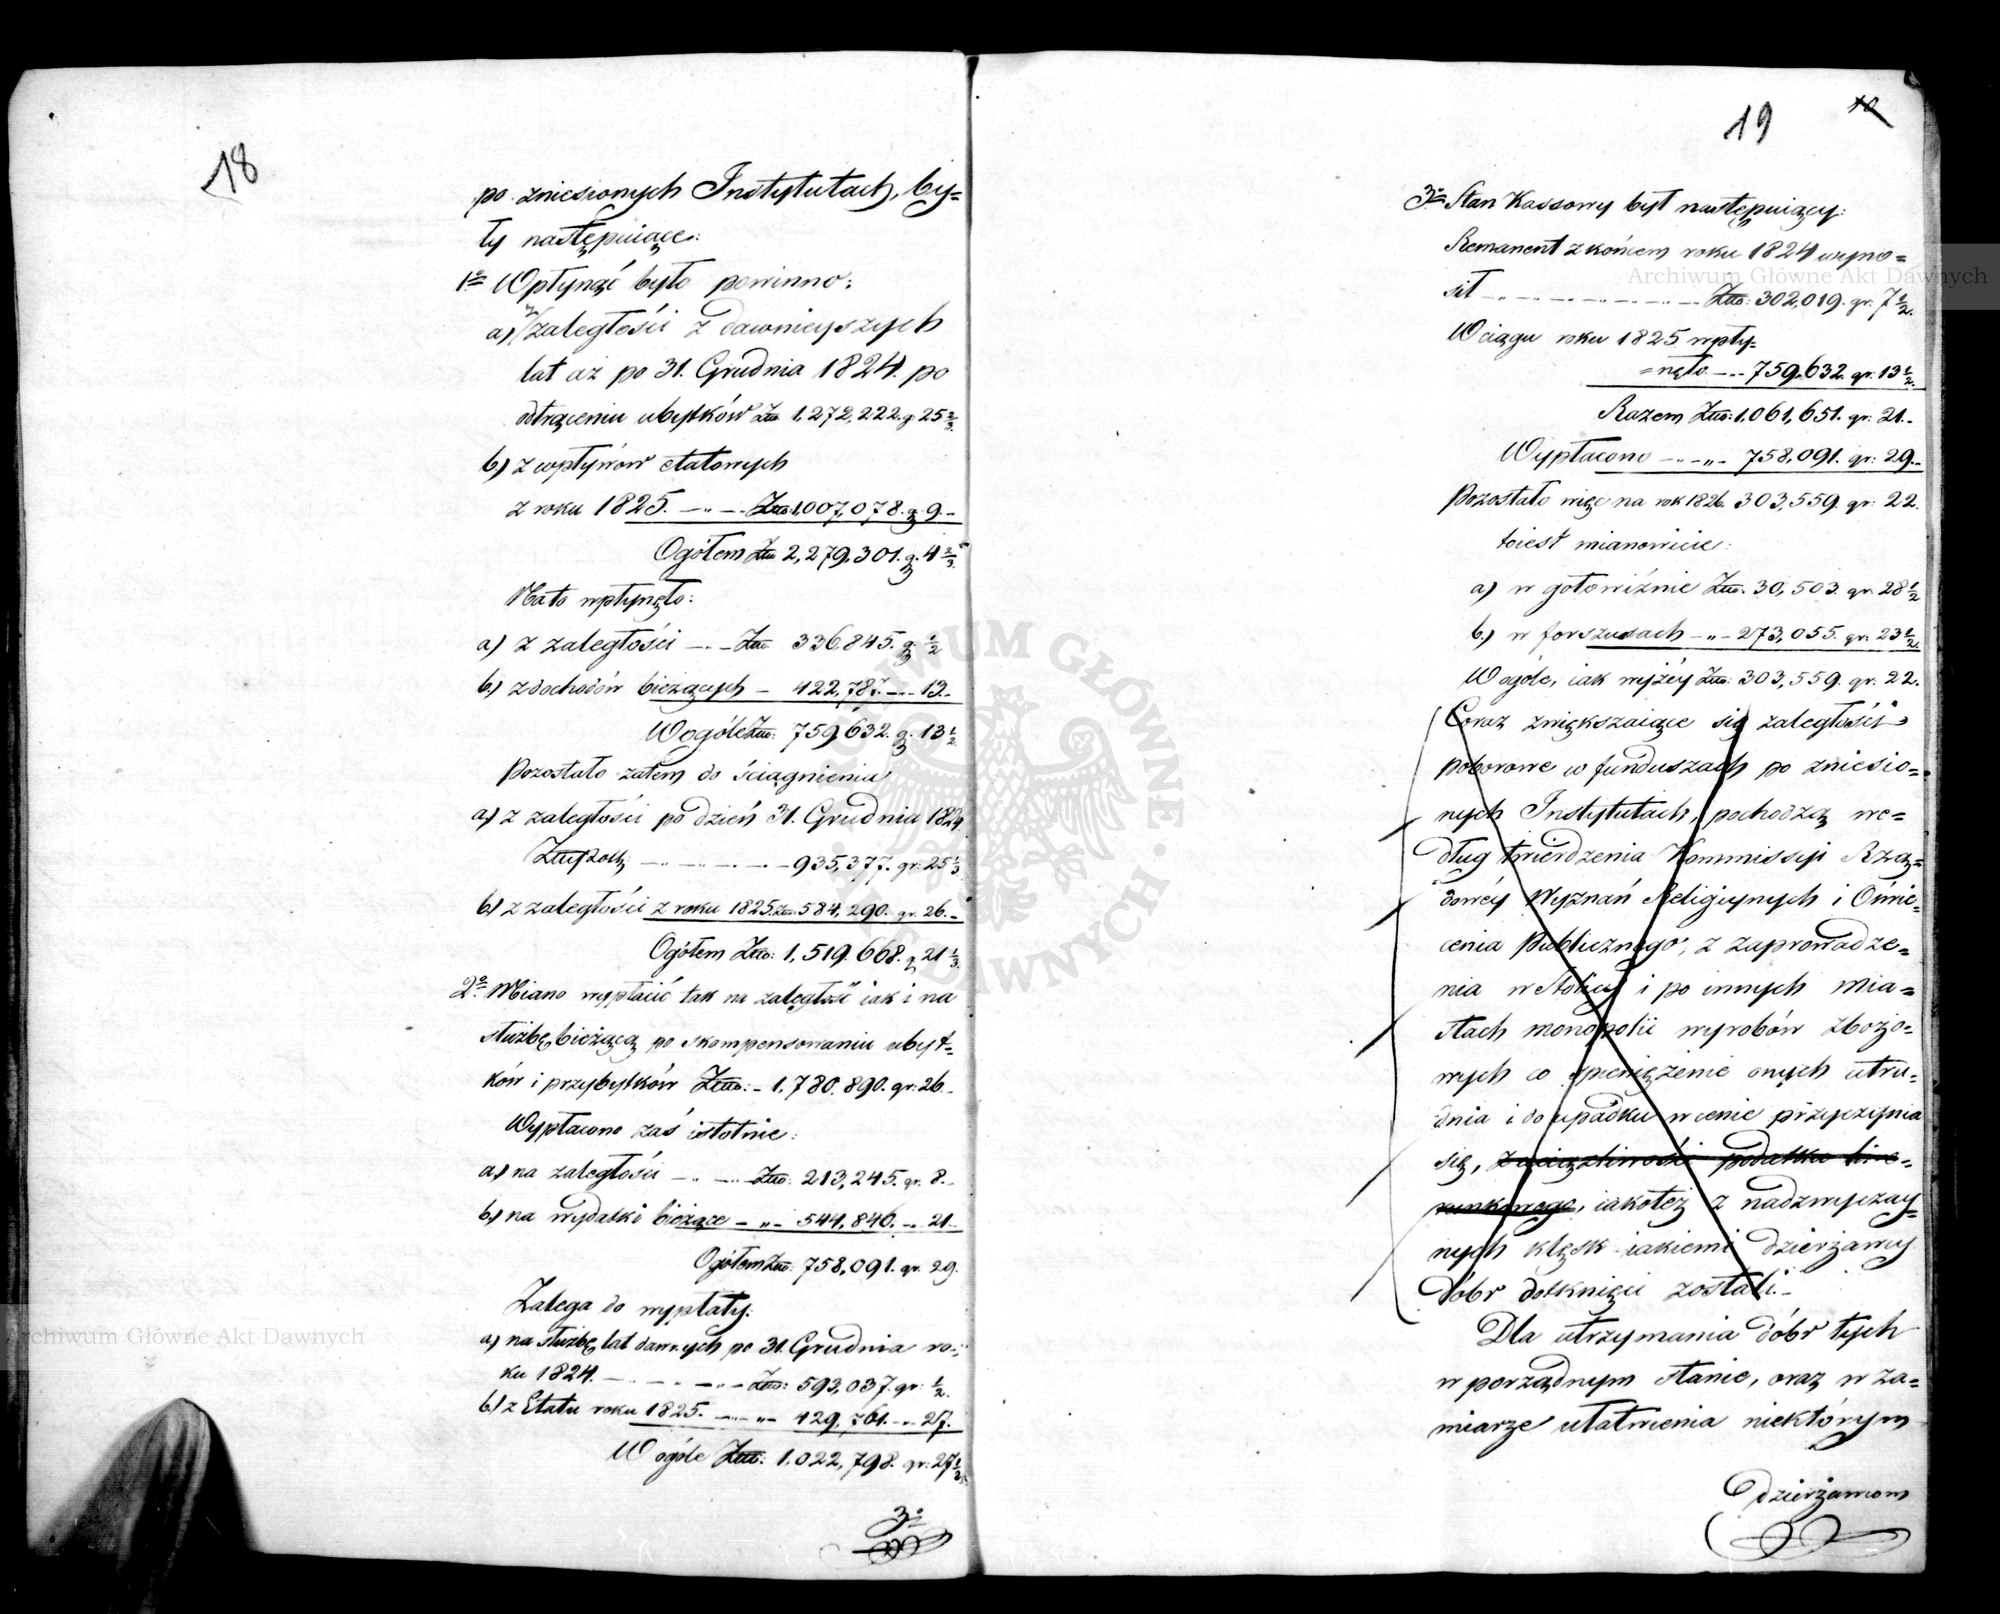 18
po zniesionych Instytutach, by=
ły następuiące:
1º Wpłynąć było powinno:
a) z zaległości z dawnieyszych
lat aż po 31. Grudnia 1824. po
odtrąceniu ubytków Złto 1,272,222. g 25 2/3.
b) z wpływów etatowych
z roku 1825. — „ — Złto 1,007,078. g. 9. -
Ogółem Złto 2,279,301. g. 4 2/3.
Na to wpłynęło:
a) z zaległości — „ — Złto 336,845. g. 1/2
b.) z dochodów bieżących — 422,787. — 13.
W ogóle Złto: 759,632. g. 13 1/2.
Pozostało zatem do ściągnienia
a) z zaległości po dzień 31. Grudnia 1824.
— „ — „ — „ — 935,377. gr. 25 1/3
b) z zaległości z roku 1825. Złto 584,290. gr. 26. -
Ogółem Złto: 1,519,668. g 21 1/3.
2º Miano wypłacić tak na zaległość iak i na
służbę bieżącą po skompensowaniu ubyt=
ków i przybytków Złto: - 1,780,890. gr: 26 -
Wypłacono zaś istotnie:
a) na zaległości — „ — „ — Złto: 213,245. gr. 8. -
b) na wydatki bieżące — „ — 544,846. — 21. -
Ogółem Złto: 758,091. gr. 29.
Zalega do wypłaty:
a) na służbę lat dawnych po 31. Grudnia ro=
ku 1824. — „ — „ — Złto: 593,037. gr: 1/2.
b) z Etatu roku 1825. — „ — „ — 429,761. — „ 27.
W ogóle Złto: 1,022,798. gr: 27 1/2.
3º
19
10
3º Stan Kassowy był następuiący:
Remanent z końcem roku 1824 wyno=
sił — „ — „ — „ — Złto: 302,019. gr. 7 1/2.
W ciągu roku 1825 wpły=
=nęło — „ - 759,632. gr. 13 1/2.
Razem Złto: 1,061,651. gr. 21. -
Wypłacono — „ — 758,091. gr: 29. -
Pozostało więc na rok 1826. 303,559. gr: 22.
toiest mianowicie:
a) w gotowiźnie Złto. 30,503. gr. 28 1/2
b.) w forszusach — „ — 273,055. gr. 23 1/2.
W ogóle, iak wyżéy Złto: 303,559. gr. 22.
Coraz zwiększaiące się zaległości
poborowe w funduszach po zniesio=
nych Instytutach, pochodzą we=
dług twierdzenia Kommissyi Rzą=
dowéy Wyznań Religiynych i Oświe=
cenia Publicznego, z zaprowadze=
nia w Stolicy i po innych mia=
stach monopolii wyrobów zbożo=
wych co spieniężenie onych utru=
dnia i do upadku w cenie przyczynia
się, z uciążliwości podatku liwe=
runkowego, iakoteż z nadzwyczay=
nych klęsk iakiemi dzierżawcy
dóbr dotknięci zostali. -
Dla utrzymania dóbr tych
w porządnym stanie, oraz w za=
miarze ułatwienia niektórym
dzierżawcom
Archiwum Główne Akt Dawnych
Archiwum Główne Akt Dawnych
ARCHIWUM GŁÓWNE AKT DAWNYCH